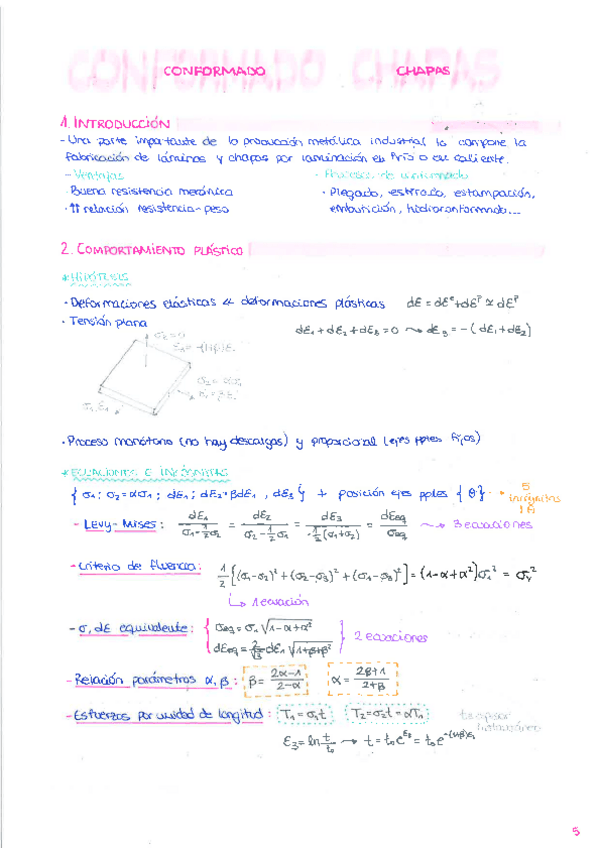 CONFORMADO CHAPAS
1. INTRODUCCIÓN
- Una parte importante de la producción metálica industrial la compone la
fabricación de láminas y chapas por laminación en frío o en caliente.
- Ventajas
· Buena resistencia mecánica
· ⇈ relación resistencia-peso
· Procesos de conformado
· Plegado, estirado, estampación,
embutición, hidroconformado...
2. COMPORTAMIENTO PLÁSTICO
* HIPÓTESIS
· Deformaciones elásticas << deformaciones plásticas dε = dεᵉ + dεᵖ ≃ dεᵖ
· Tensión plana dε₁ + dε₂ + dε₃ = 0 ⤳ dε₃ = -(dε₁ + dε₂)
ε₃ = -(1+β)ε₁
σ₂ = ασ₁
σ₁, ε₁
· Proceso monótono (no hay descargas) y proporcional (ejes pples fijos)
* ECUACIONES E INCÓGNITAS
{σ₁; σ₂=ασ₁; dε₁; dε₂=βdε₁, dε₃} + posición ejes pples {θ} → 5 incógnitas
- Levy-Mises: dε₁/(σ₁-½σ₂) = dε₂/(σ₂-½σ₁) = dε₃/(-½(σ₁+σ₂)) = dεeq/σeq ⤳ 3 ecuaciones
- Criterio de fluencia: ½[(σ₁-σ₂)² + (σ₂-σ₃)² + (σ₁-σ₃)²] = (1-α+α²)σ₁² = σy²
↳ 1 ecuación
- σ, dε equivalente: { σeq = σ₁√(1-α+α²)
dεeq = 2/√3 dε₁√(1+β+β²) } 2 ecuaciones
- Relación parámetros α, β: β = (2α-1)/(2-α) α = (2β+1)/(2+β)
- Esfuerzos por unidad de longitud: T₁ = σ₁t T₂ = σ₂t = αT₁
ε₃ = ln t/t₀ → t = t₀e^ε₃ = t₀e^-(1+β)ε₁
5